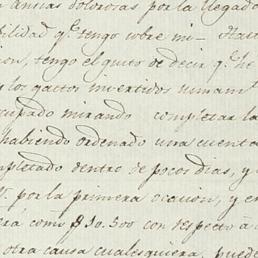 ansias dolorosas por la llegada
bilidad qe. tengo sobre mi — Hast
ion, tengo el gusto de decir qe. he
y los gastos invertidos
cupado mirando completar la
habiendo ordenado una cuenta
mpletado dentro de pocos dias, y
por la primera ocasion, y e
erá como $10.500 con respecto á
otra causa cualesquiera, puede